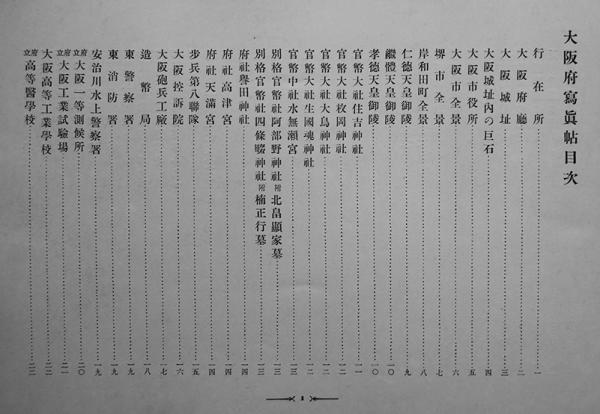 大阪府寫眞帖目次
行在所……一
大阪府廳……二
大阪城址……三
大阪城址內の巨石……四
大阪市役所……五
大阪市全景……六
堺市全景……七
岸和田町全景……八
仁德天皇御陵……九
繼體天皇御陵……一〇
孝德天皇御陵……一〇
官幣大社住吉神社……一一
官幣大社枚岡神社……一二
官幣大社大鳥神社……一二
官幣大社生國魂神社……一二
官幣中社水無瀨宮……一三
別格官幣社阿部野神社附北畠顯家墓……一三
別格官幣社四條畷神社附楠正行墓……一三
府社譽田神社……一四
府社高津宮……一四
府社天滿宮……一四
步兵第八聯隊……一五
大阪控訴院……一六
大阪砲兵工廠……一七
造幣局……一八
東警察署……一九
東消防署……一九
安治川水上警察署……一九
府立大阪一等測候所……二〇
府立大阪工業試驗場……二一
大阪高等工業學校……二二
府立高等醫學校……二二
1